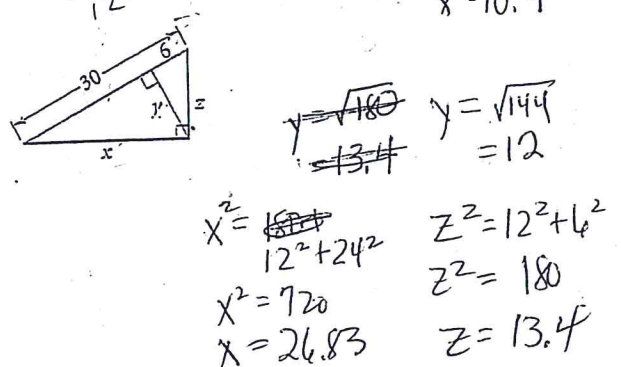 12
x = 10.4
30
6
y
z
x
y = √180
= 13.4
y = √144
= 12
x² =
12² + 24²
x² = 720
x = 26.83
z² = 12² + 6²
z² = 180
z = 13.4